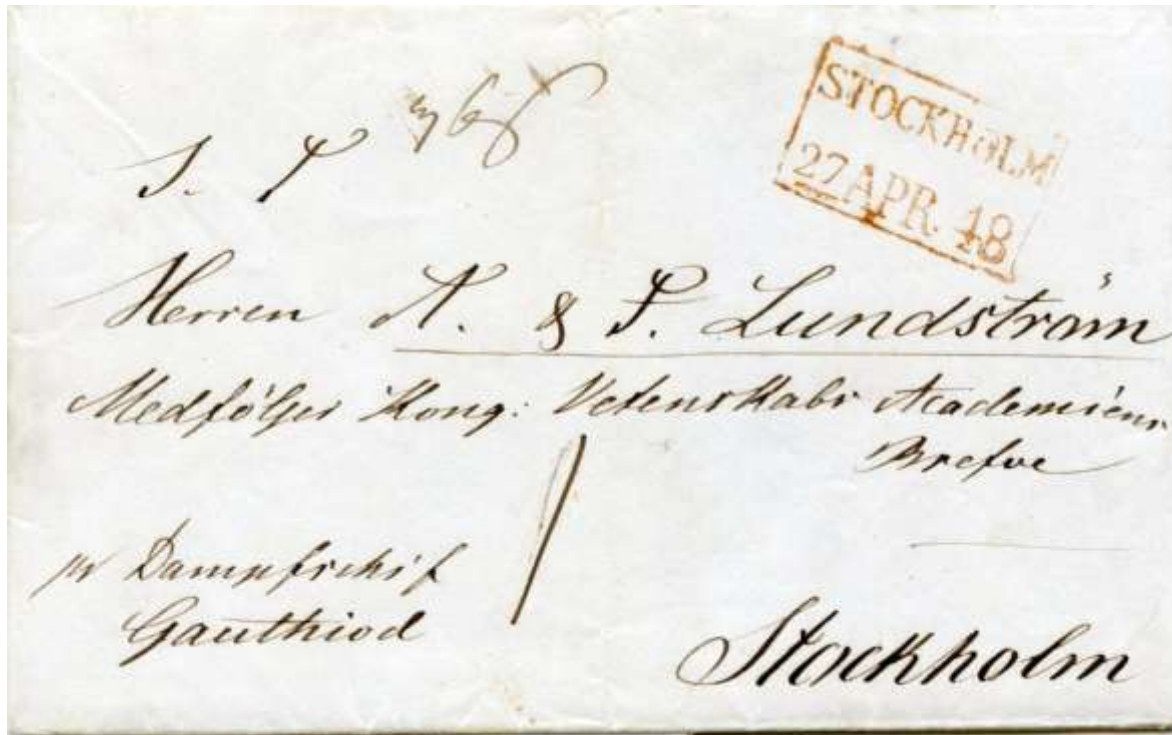 STOCKHOLM
27 APR. 18
S. T
Herren N. & P. Lundström
Medfölger Kong: Vetenskabs Academiens
Brefve
pr Dampfschif
Gauthiod
Stockholm